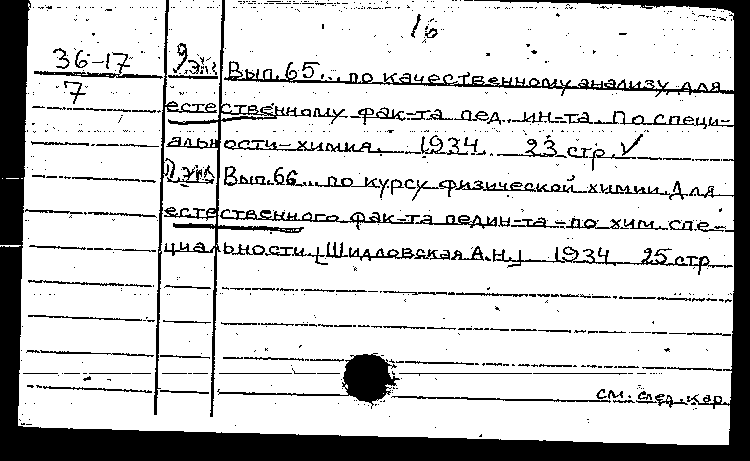 16
36-17 2эж Вып.65... по качественному анализу для
7
естественному фак-та пед. ин-та. По специ-
альности-химия. 1934. 23 стр. ✓
2эж Вып.66... по курсу физической химии. Для
естественного фак-та педин-та - по хим. спе-
циальности. [Шидловская А.Н.] 1934 25 стр
см. след. кар.